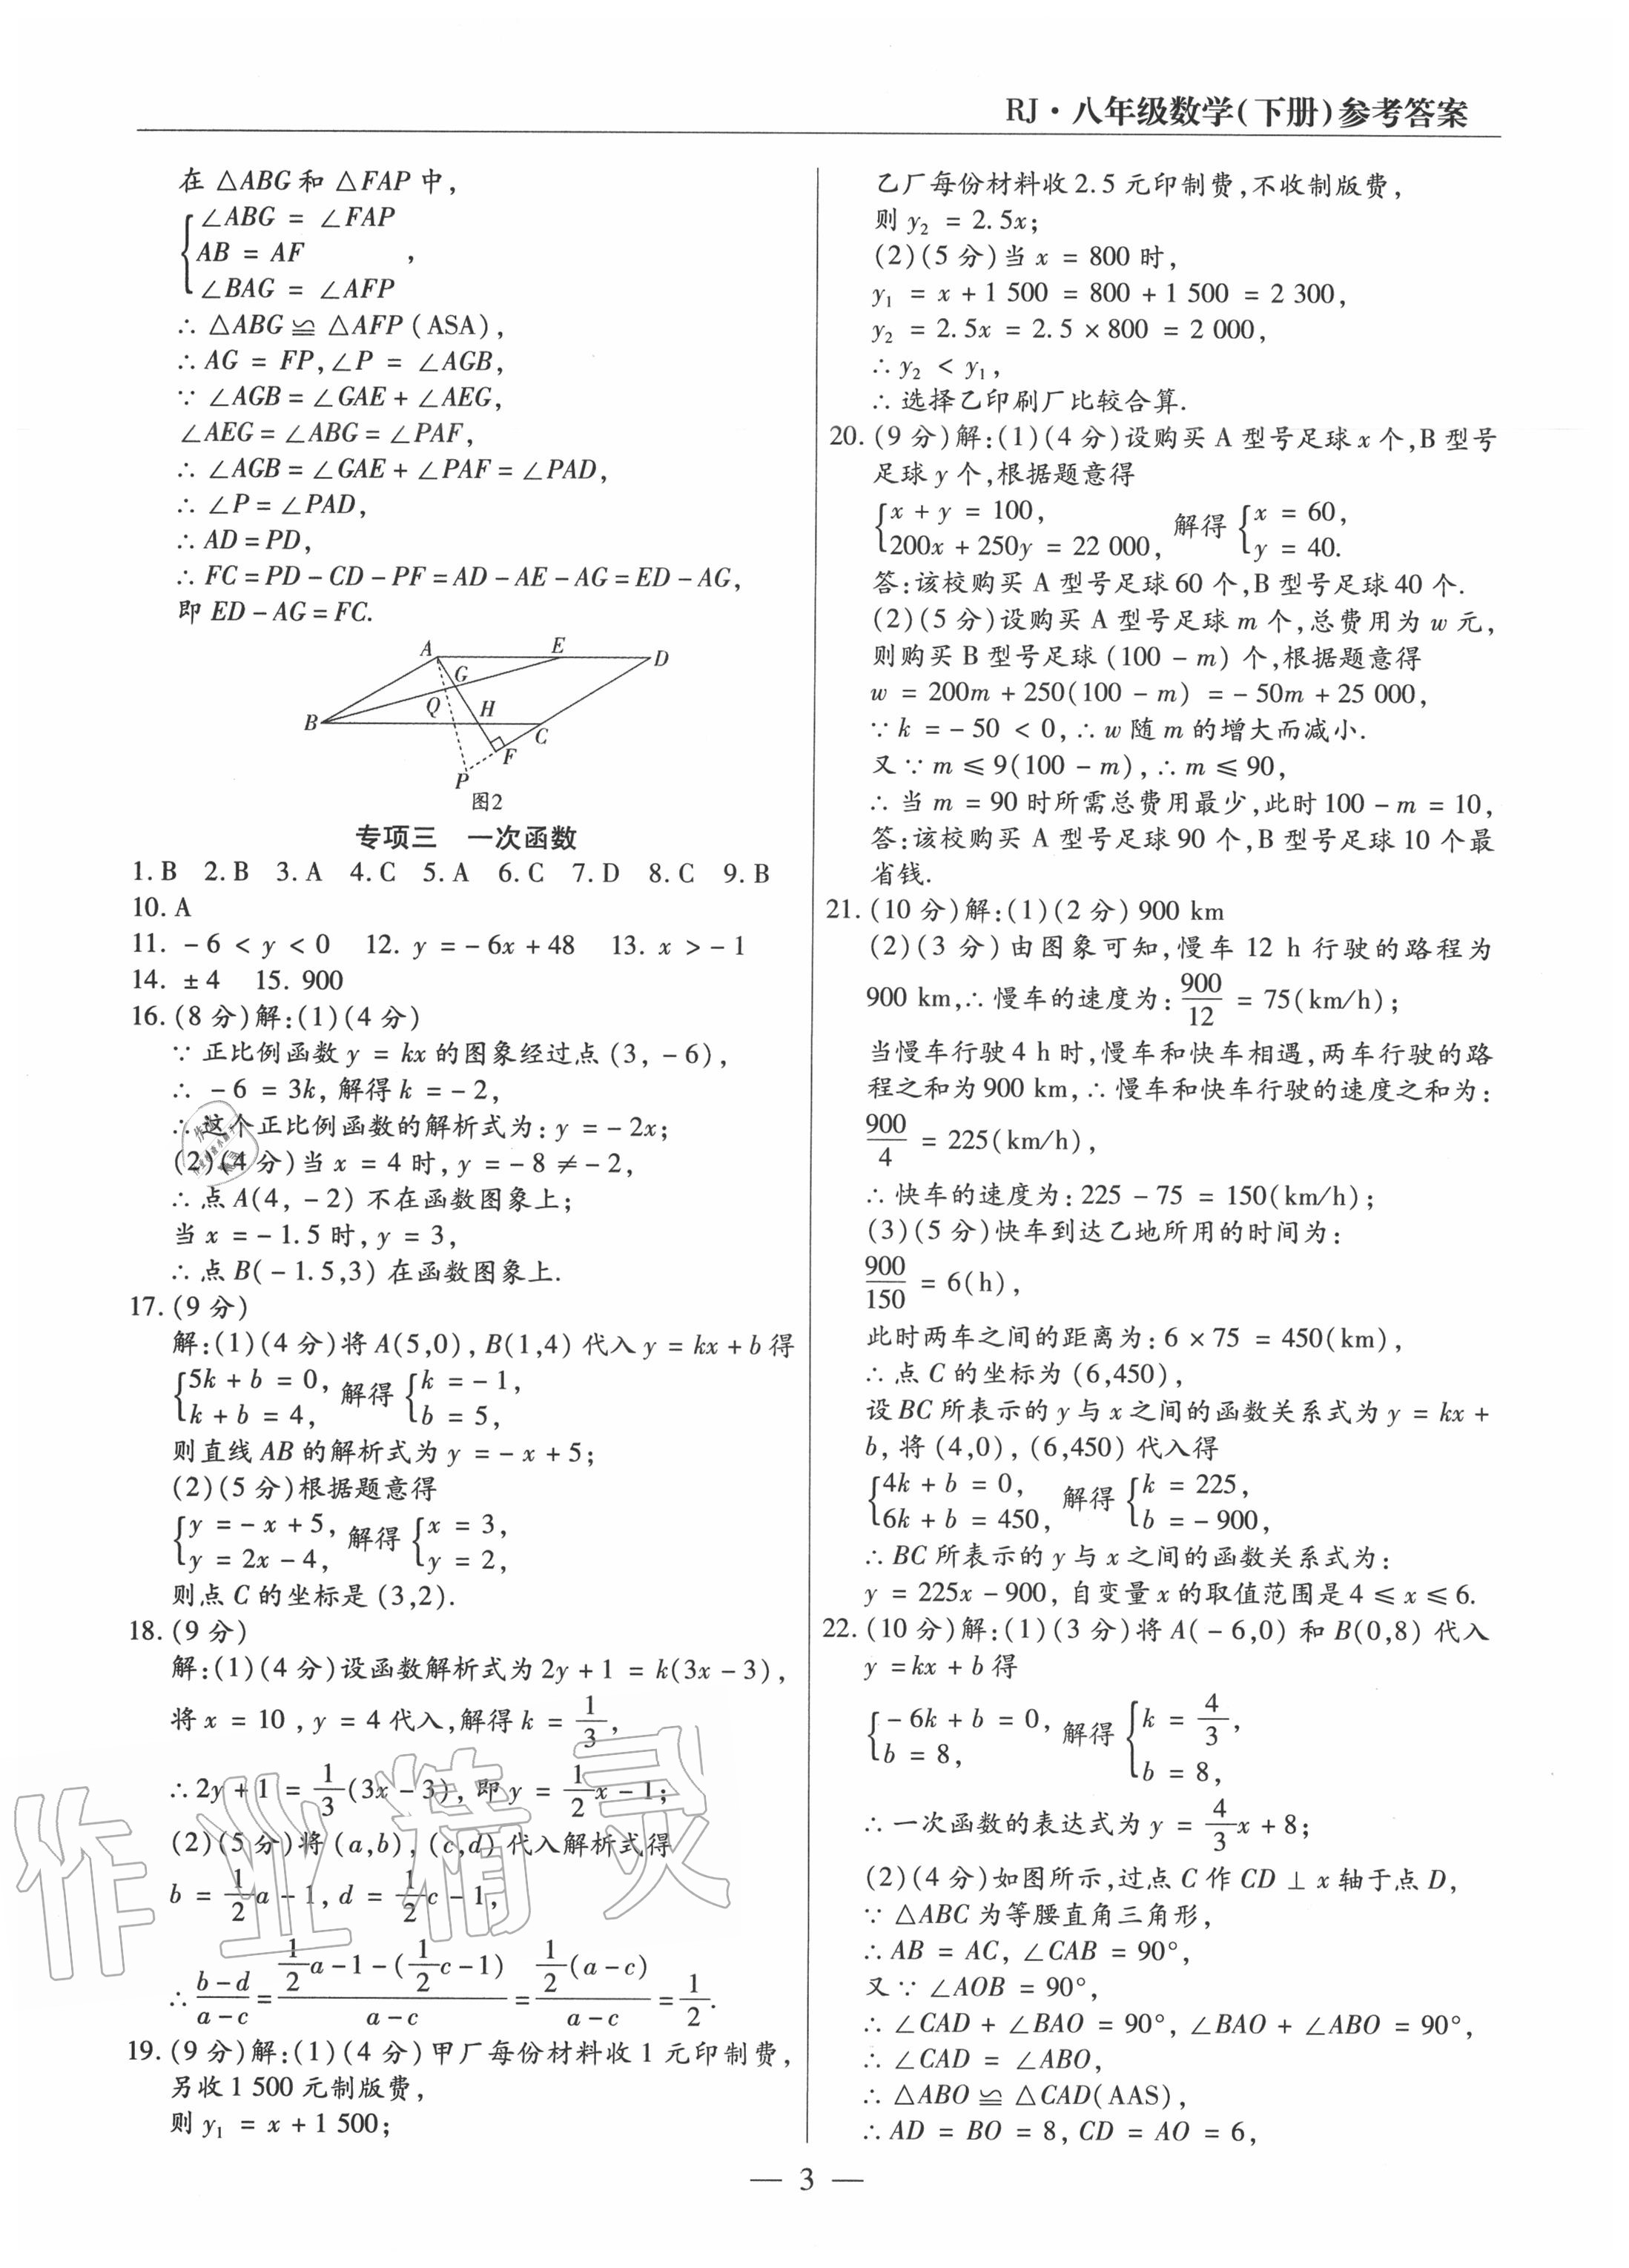 RJ·八年级数学(下册)参考答案
在 △ABG 和 △FAP 中,
∠ABG = ∠FAP
AB = AF ,
∠BAG = ∠AFP
∴ △ABG ≌ △AFP (ASA),
∴ AG = FP, ∠P = ∠AGB,
∵ ∠AGB = ∠GAE + ∠AEG,
∠AEG = ∠ABG = ∠PAF,
∴ ∠AGB = ∠GAE + ∠PAF = ∠PAD,
∴ ∠P = ∠PAD,
∴ AD = PD,
∴ FC = PD - CD - PF = AD - AE - AG = ED - AG,
即 ED - AG = FC.
A E D
G
B Q H C
F
P
图2
专项三 一次函数
1. B 2. B 3. A 4. C 5. A 6. C 7. D 8. C 9. B
10. A
11. -6 < y < 0 12. y = -6x + 48 13. x > -1
14. ±4 15. 900
16. (8 分)解:(1)(4 分)
∵ 正比例函数 y = kx 的图象经过点 (3, -6),
∴ -6 = 3k, 解得 k = -2,
∴ 这个正比例函数的解析式为: y = -2x;
(2)(4 分)当 x = 4 时, y = -8 ≠ -2,
∴ 点 A(4, -2) 不在函数图象上;
当 x = -1.5 时, y = 3,
∴ 点 B(-1.5,3) 在函数图象上.
17. (9 分)
解:(1)(4 分)将 A(5,0), B(1,4) 代入 y = kx + b 得
5k + b = 0, 解得 k = -1,
k + b = 4, b = 5,
则直线 AB 的解析式为 y = -x + 5;
(2)(5 分)根据题意得
y = -x + 5, 解得 x = 3,
y = 2x - 4, y = 2,
则点 C 的坐标是 (3,2).
18. (9 分)
解:(1)(4 分)设函数解析式为 2y + 1 = k(3x - 3),
将 x = 10, y = 4 代入,解得 k = 1/3,
∴ 2y + 1 = 1/3(3x - 3), 即 y = 1/2x - 1;
(2)(5 分)将 (a,b), (c,d) 代入解析式得
b = 1/2a - 1, d = 1/2c - 1,
∴ (b-d)/(a-c) = (1/2a - 1 - (1/2c - 1))/(a-c) = (1/2(a-c))/(a-c) = 1/2.
19. (9 分)解:(1)(4 分)甲厂每份材料收 1 元印制费,
另收 1 500 元制版费,
则 y₁ = x + 1 500;
乙厂每份材料收 2.5 元印制费,不收制版费,
则 y₂ = 2.5x;
(2)(5 分)当 x = 800 时,
y₁ = x + 1 500 = 800 + 1 500 = 2 300,
y₂ = 2.5x = 2.5 × 800 = 2 000,
∴ y₂ < y₁,
∴ 选择乙印刷厂比较合算.
20. (9 分)解:(1)(4 分)设购买 A 型号足球 x 个,B 型号
足球 y 个,根据题意得
x + y = 100, 解得 x = 60,
200x + 250y = 22 000, y = 40.
答:该校购买 A 型号足球 60 个,B 型号足球 40 个.
(2)(5 分)设购买 A 型号足球 m 个,总费用为 w 元,
则购买 B 型号足球 (100 - m) 个,根据题意得
w = 200m + 250(100 - m) = -50m + 25 000,
∵ k = -50 < 0, ∴ w 随 m 的增大而减小.
又 ∵ m ≤ 9(100 - m), ∴ m ≤ 90,
∴ 当 m = 90 时所需总费用最少,此时 100 - m = 10,
答:该校购买 A 型号足球 90 个,B 型号足球 10 个最
省钱.
21. (10 分)解:(1)(2 分) 900 km
(2)(3 分)由图象可知,慢车 12 h 行驶的路程为
900 km, ∴ 慢车的速度为: 900/12 = 75(km/h);
当慢车行驶 4 h 时,慢车和快车相遇,两车行驶的路
程之和为 900 km, ∴ 慢车和快车行驶的速度之和为:
900/4 = 225(km/h),
∴ 快车的速度为: 225 - 75 = 150(km/h);
(3)(5 分)快车到达乙地所用的时间为:
900/150 = 6(h),
此时两车之间的距离为: 6 × 75 = 450(km),
∴ 点 C 的坐标为 (6,450),
设 BC 所表示的 y 与 x 之间的函数关系式为 y = kx +
b, 将 (4,0), (6,450) 代入得
4k + b = 0, 解得 k = 225,
6k + b = 450, b = -900,
∴ BC 所表示的 y 与 x 之间的函数关系式为:
y = 225x - 900, 自变量 x 的取值范围是 4 ≤ x ≤ 6.
22. (10 分)解:(1)(3 分)将 A(-6,0) 和 B(0,8) 代入
y = kx + b 得
-6k + b = 0, 解得 k = 4/3,
b = 8, b = 8,
∴ 一次函数的表达式为 y = 4/3x + 8;
(2)(4 分)如图所示,过点 C 作 CD ⊥ x 轴于点 D,
∵ △ABC 为等腰直角三角形,
∴ AB = AC, ∠CAB = 90°,
又 ∵ ∠AOB = 90°,
∴ ∠CAD + ∠BAO = 90°, ∠BAO + ∠ABO = 90°,
∴ ∠CAD = ∠ABO,
∴ △ABO ≌ △CAD(AAS),
∴ AD = BO = 8, CD = AO = 6,
— 3 —
作业精灵